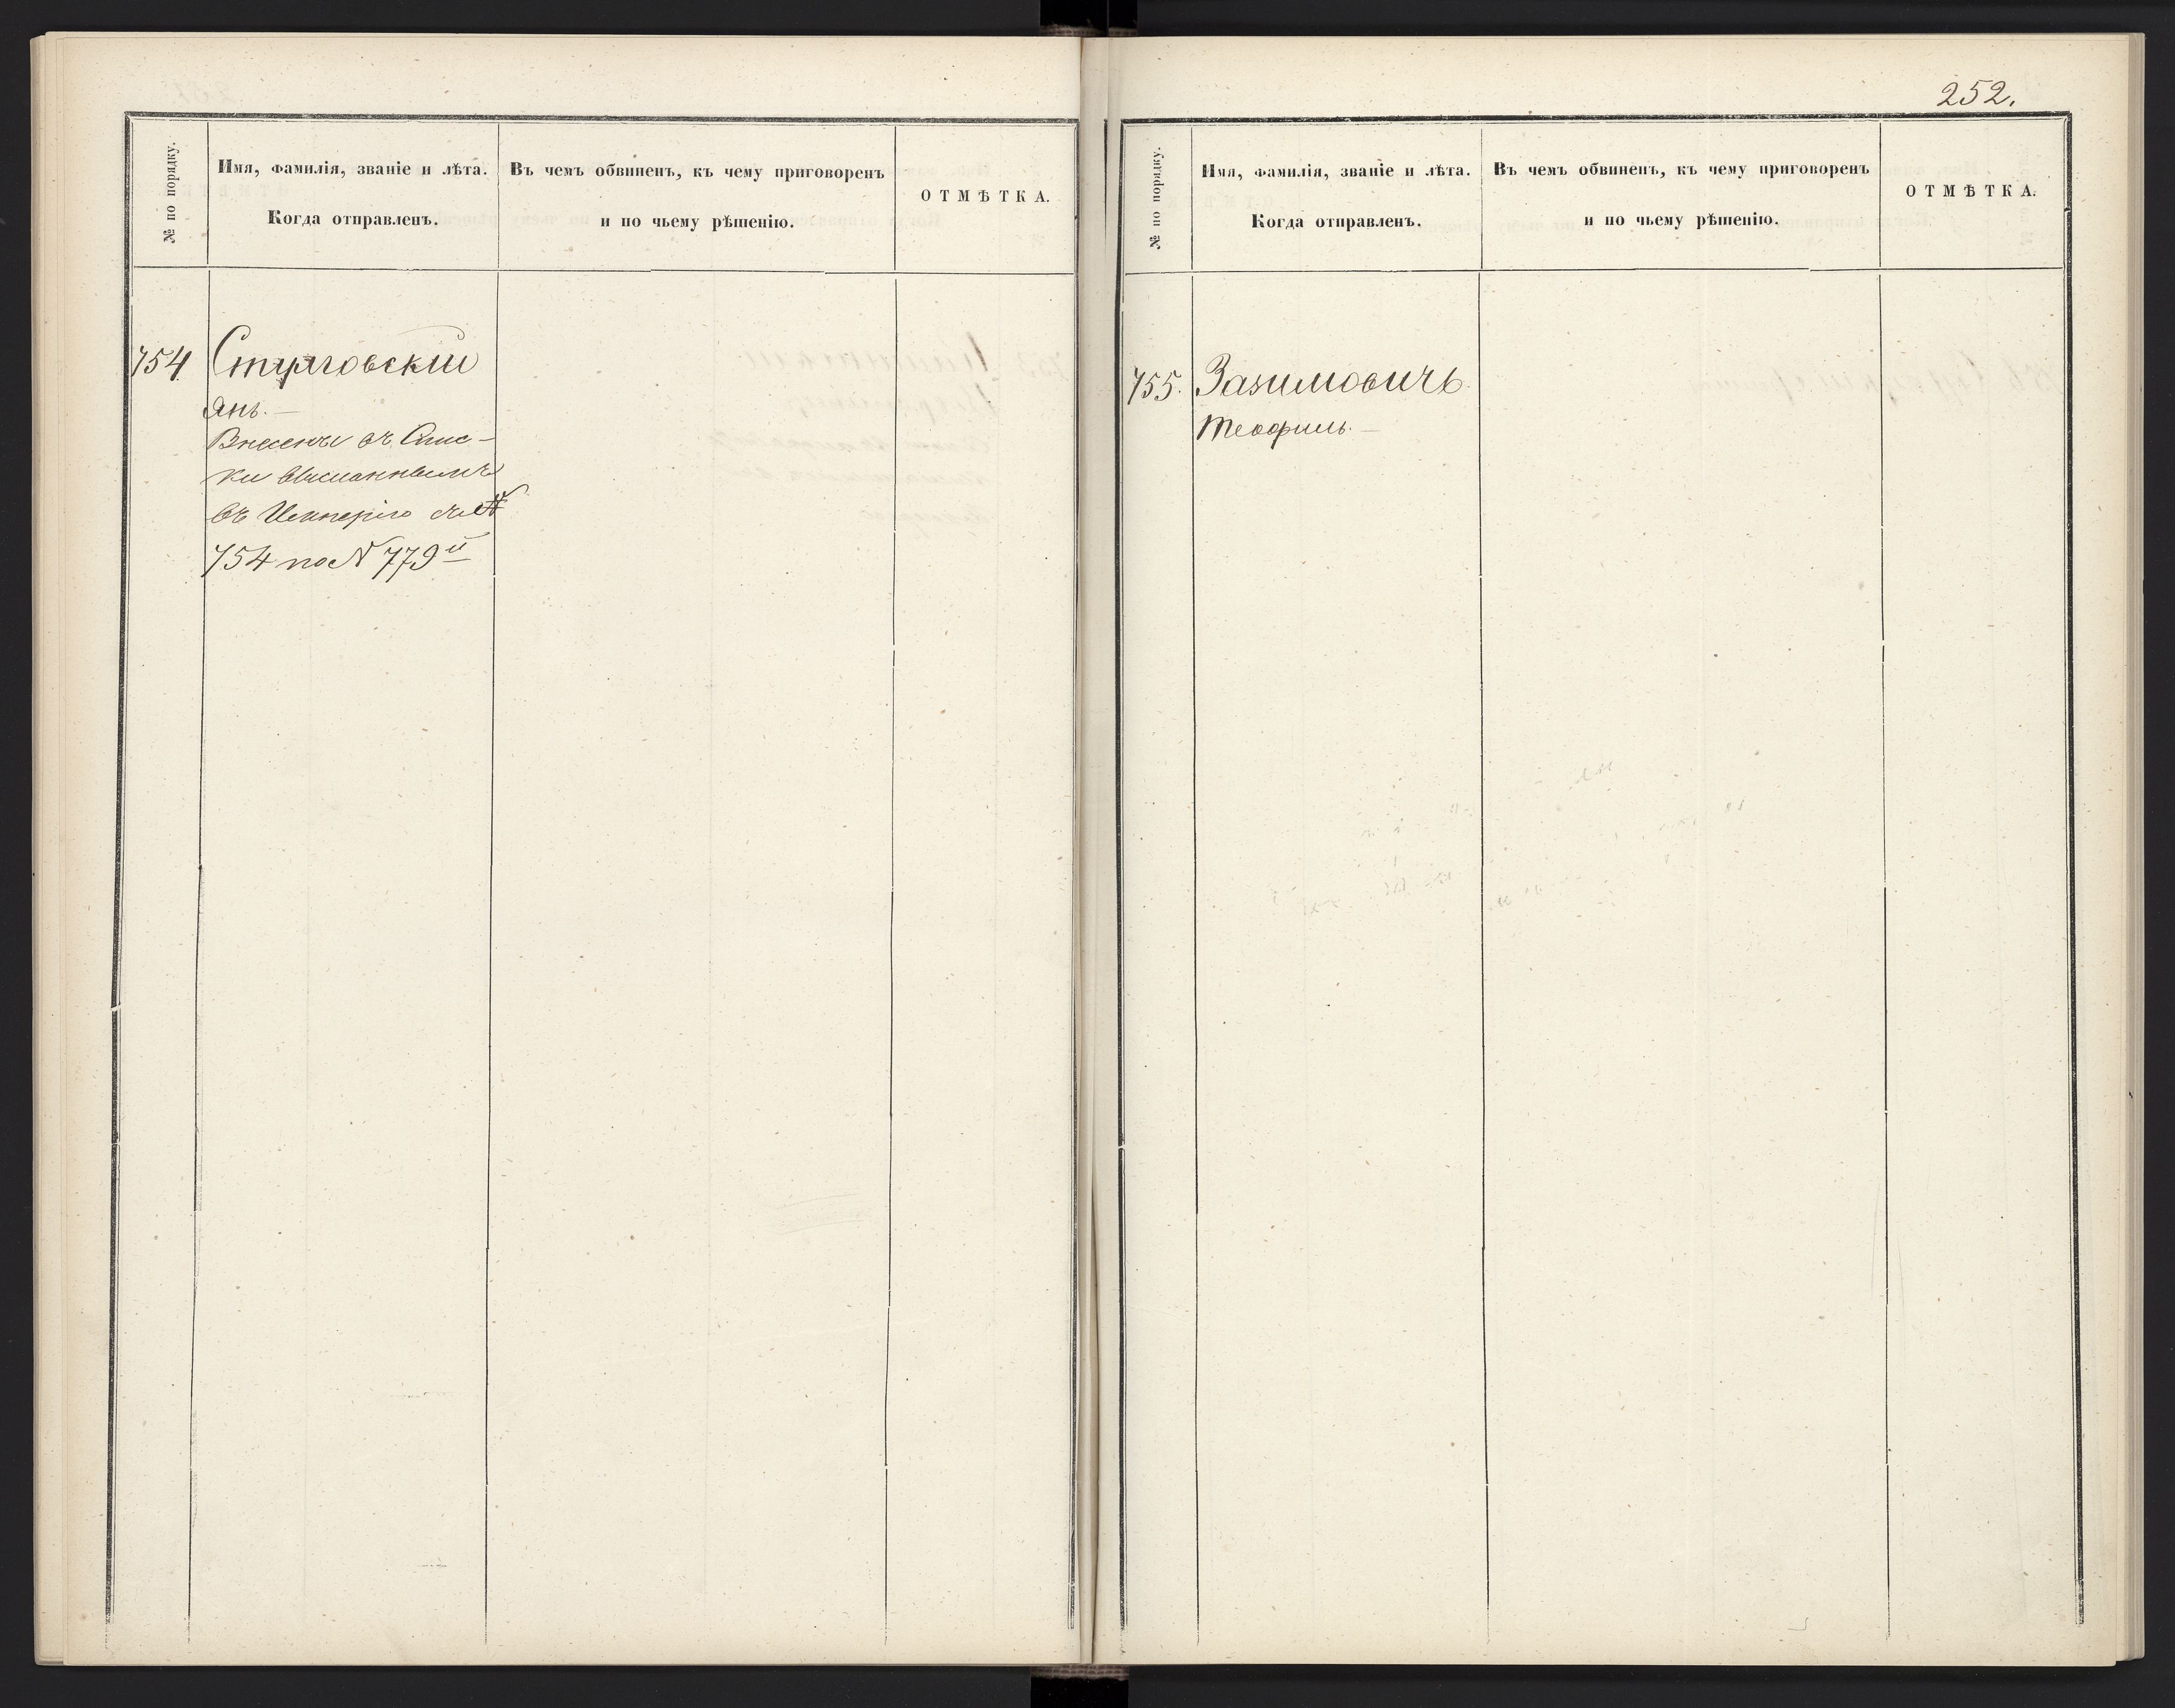 № по порядку.
Имя, фамилія, званіе и лѣта.
Когда отправленъ.
Въ чемъ обвиненъ, къ чему приговоренъ
и по чьему рѣшенію.
ОТМѢТКА.
754
Янъ. —
Внесены въ Спис-
ки высланнымъ
въ Имперію съ №
754 по № 779й
252.
№ по порядку.
Имя, фамилія, званіе и лѣта.
Когда отправленъ.
Въ чемъ обвиненъ, къ чему приговоренъ
и по чьему рѣшенію.
ОТМѢТКА.
755. Зазимовичъ
Теофиль. —